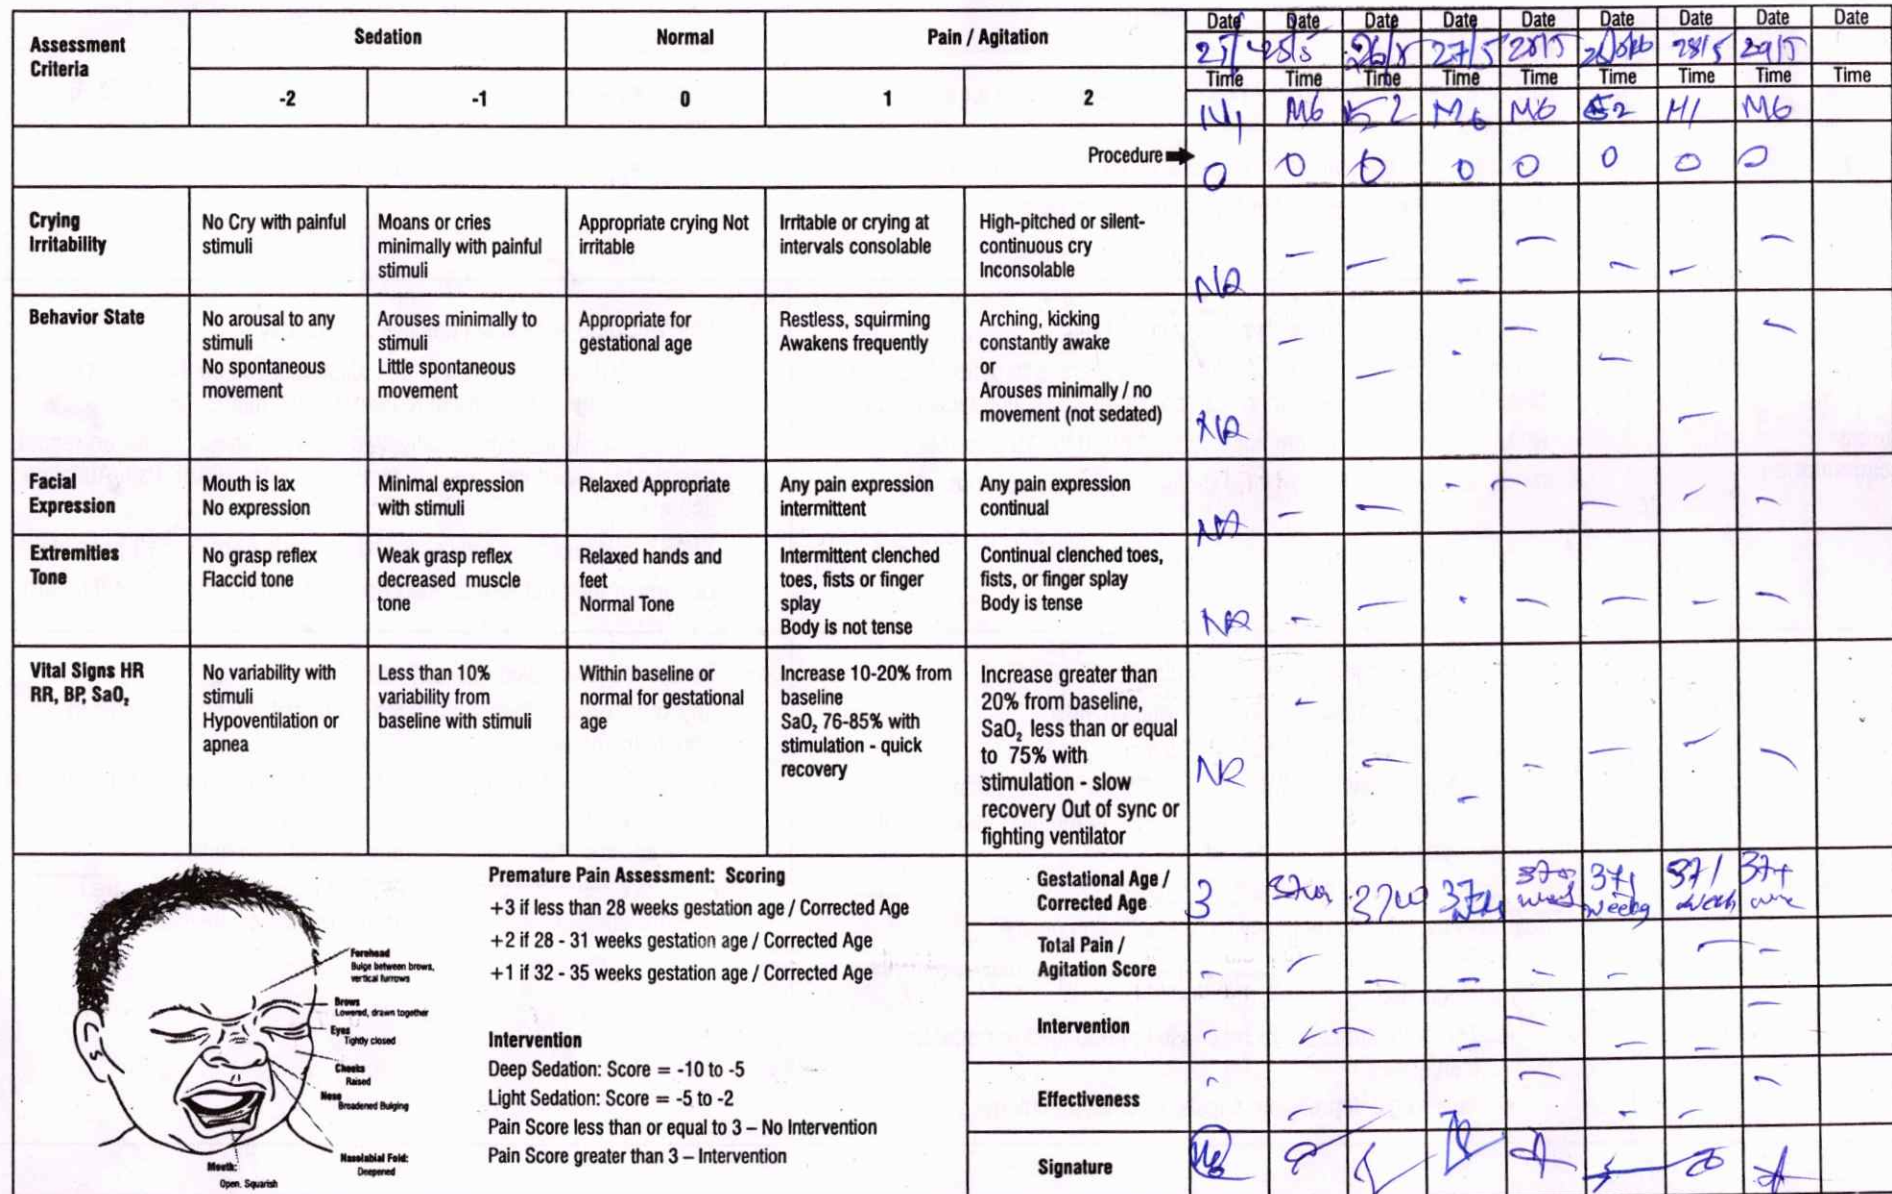 Assessment Criteria
Sedation
Normal
Pain / Agitation
-2
-1
0
1
2
Date Date Date Date Date Date Date Date Date
25/5 27/5 28/5 28/5 29/5
Time Time Time Time Time Time Time Time Time
M6 M6 M6 M6
Procedure
0 0 0 0 0 0 0 0
Crying Irritability
No Cry with painful stimuli
Moans or cries minimally with painful stimuli
Appropriate crying Not irritable
Irritable or crying at intervals consolable
High-pitched or silent-continuous cry
Inconsolable
NA
Behavior State
No arousal to any stimuli
No spontaneous movement
Arouses minimally to stimuli
Little spontaneous movement
Appropriate for gestational age
Restless, squirming
Awakens frequently
Arching, kicking constantly awake
or
Arouses minimally / no movement (not sedated)
NA
Facial Expression
Mouth is lax
No expression
Minimal expression with stimuli
Relaxed Appropriate
Any pain expression intermittent
Any pain expression continual
NA
Extremities Tone
No grasp reflex
Flaccid tone
Weak grasp reflex decreased muscle tone
Relaxed hands and feet
Normal Tone
Intermittent clenched toes, fists or finger splay
Body is not tense
Continual clenched toes, fists, or finger splay
Body is tense
NA
Vital Signs HR RR, BP, SaO₂
No variability with stimuli
Hypoventilation or apnea
Less than 10% variability from baseline with stimuli
Within baseline or normal for gestational age
Increase 10-20% from baseline
SaO₂ 76-85% with stimulation - quick recovery
Increase greater than 20% from baseline, SaO₂ less than or equal to 75% with stimulation - slow recovery Out of sync or fighting ventilator
NA
Forehead
Bulge between brows, vertical furrows
Brows
Lowered, drawn together
Eyes
Tightly closed
Cheeks
Raised
Nose
Broadened Bulging
Nasolabial Fold:
Deepened
Mouth:
Open, Squarish
Premature Pain Assessment: Scoring
+3 if less than 28 weeks gestation age / Corrected Age
+2 if 28 - 31 weeks gestation age / Corrected Age
+1 if 32 - 35 weeks gestation age / Corrected Age
Intervention
Deep Sedation: Score = -10 to -5
Light Sedation: Score = -5 to -2
Pain Score less than or equal to 3 – No Intervention
Pain Score greater than 3 – Intervention
Gestational Age / Corrected Age
3
Total Pain / Agitation Score
Intervention
Effectiveness
Signature